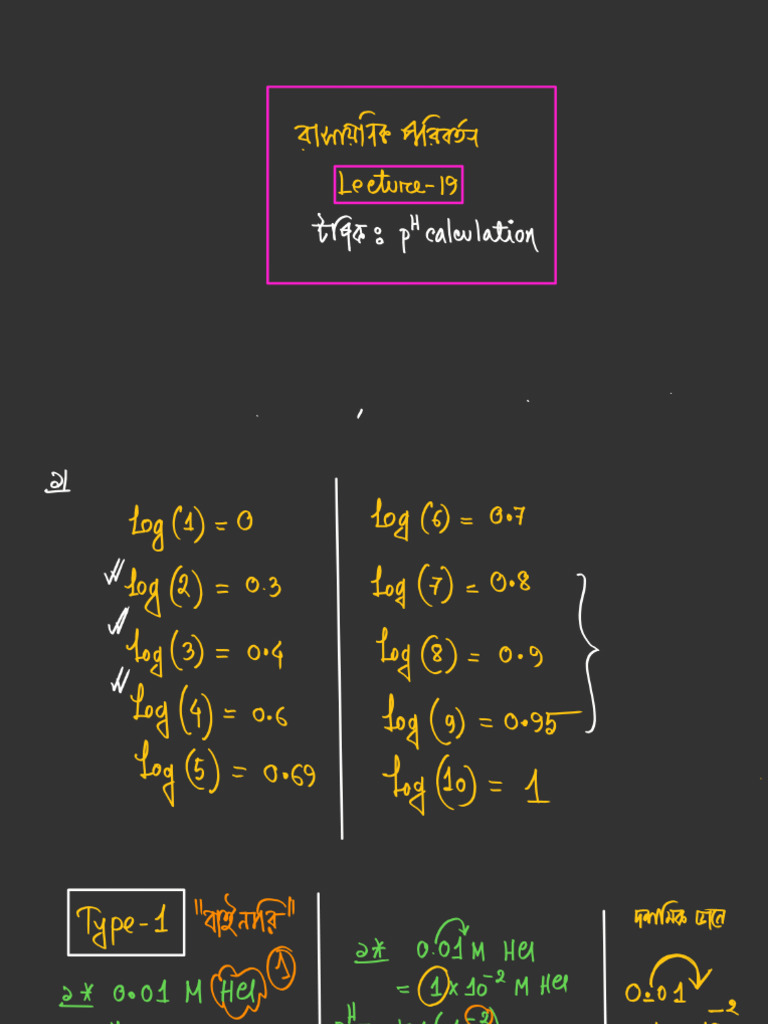 রাসায়নিক পরিবর্তন
Lecture-19
টপিক: pᴴ calculation
১।
log(1) = 0
log(2) = 0.3
log(3) = 0.4
log(4) = 0.6
log(5) = 0.69
log(6) = 0.7
log(7) = 0.8
log(8) = 0.9
log(9) = 0.95
log(10) = 1
Type-1 "বাইনারি"
১* 0.01 M HCl 1
১* 0.01 M HCl
= 1 × 10⁻² M HCl
দশমিক
0.01